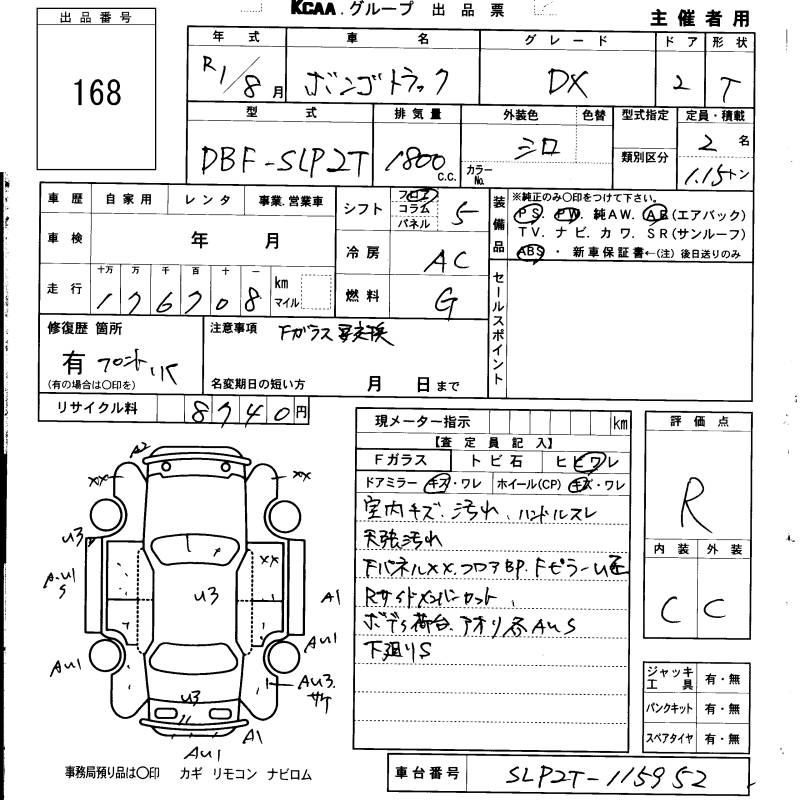 KCAA グループ 出品票
主催者用
出品番号
168
年式 車名 グレード ドア 形状
R1/8月 ボンゴトラック DX 2 T
型式 排気量 外装色 色替 型式指定 定員・積載
DBF-SLP2T 1800c.c. シロ カラーNo. 類別区分 2名 1.15トン
車歴 自家用 レンタ 事業.営業車
車検 年 月
走行 十万 万 千 百 十 一
176708 km マイル
シフト フロア コラム パネル 5
冷房 AC
燃料 G
装備品 ※純正のみ〇印をつけて下さい。
PS. PW. 純AW. AB(エアバック)
TV. ナビ. カワ. SR(サンルーフ)
ABS ・ 新車保証書←(注) 後日送りのみ
セールスポイント
修復歴 箇所
有 フロント.
(有の場合は〇印を)
注意事項 Fガラス要交換
名変期日の短い方 月 日まで
リサイクル料 8740円
現メーター指示 km
【査定員記入】
Fガラス トビ石 ヒビワレ
ドアミラー キズ・ワレ ホイール(CP) キズ・ワレ
室内キズ. 汚れ. ハンドルスレ
天張汚れ
FパネルXX.フロアBP.Fピラー
Rサイドメンバーカット
ボディ荷台.アオリ各AUS
下廻りS
評価点
R
内装 外装
C C
ジャッキ工具 有・無
パンクキット 有・無
スペアタイヤ 有・無
A2
XX XX
U3
A.U1 S
XX
U3
A1
AU1
AU1
AU3. サケ
U3
A1
AU1
事務局預り品は〇印 カギ リモコン ナビロム
車台番号 SLP2T-115952